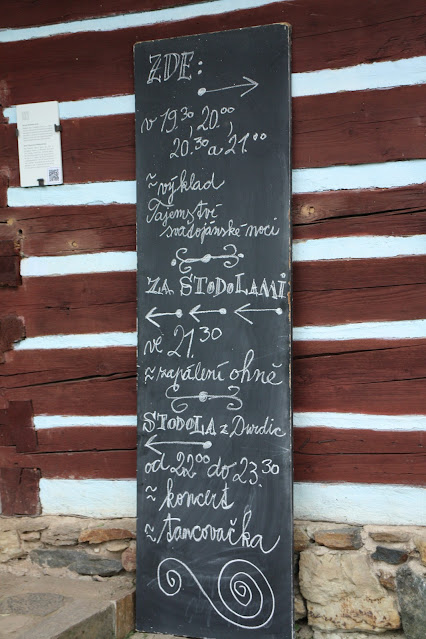 ZDE:
v 19.30, 20.00,
20.30 a 21.00
~ výklad
Tajemství
svatojánské noci
ZA STODOLAMI
ve 21.30
~ zapálení ohně
STODOLA z Durdic
od 22.00 do 23.30
~ koncert
~ tancovačka